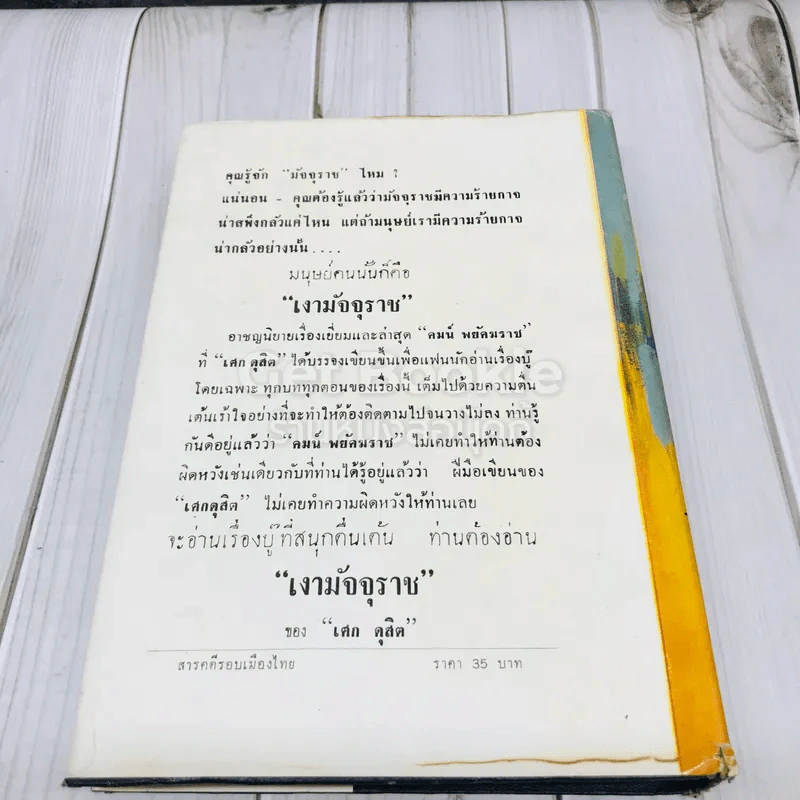 คุณรู้จัก “มัจจุราช” ไหม ?
แน่นอน - คุณต้องรู้แล้วว่ามัจจุราชมีความร้ายกาจ
น่าสพึงกลัวแค่ไหน แต่ถ้ามนุษย์เรามีความร้ายกาจ
น่ากลัวอย่างนั้น....
มนุษย์คนนั้นก็คือ
“เงามัจจุราช”
อาชญนิยายเรื่องเยี่ยมและล่าสุด “คมน์ พยัคฆราช”
ที่ “เศก ดุสิต” ได้บรรจงเขียนขึ้นเพื่อแฟนนักอ่านเรื่องบู๊
โดยเฉพาะ ทุกบททุกตอนของเรื่องนี้ เต็มไปด้วยความตื่น
เต้นเร้าใจอย่างที่จะทำให้ต้องติดตามไปจนวางไม่ลง ท่านรู้
กันดีอยู่แล้วว่า “คมน์ พยัคฆราช” ไม่เคยทำให้ท่านต้อง
ผิดหวังเช่นเดียวกับที่ท่านได้รู้อยู่แล้วว่า ฝีมือเขียนของ
“เศกดุสิต” ไม่เคยทำความผิดหวังให้ท่านเลย
จะอ่านเรื่องบู๊ที่สนุกตื่นเต้น ท่านต้องอ่าน
“เงามัจจุราช”
ของ “เศก ดุสิต”
สารคดีรอบเมืองไทย ราคา 35 บาท
Get Bookie
ร้านหนังสือมุกดี